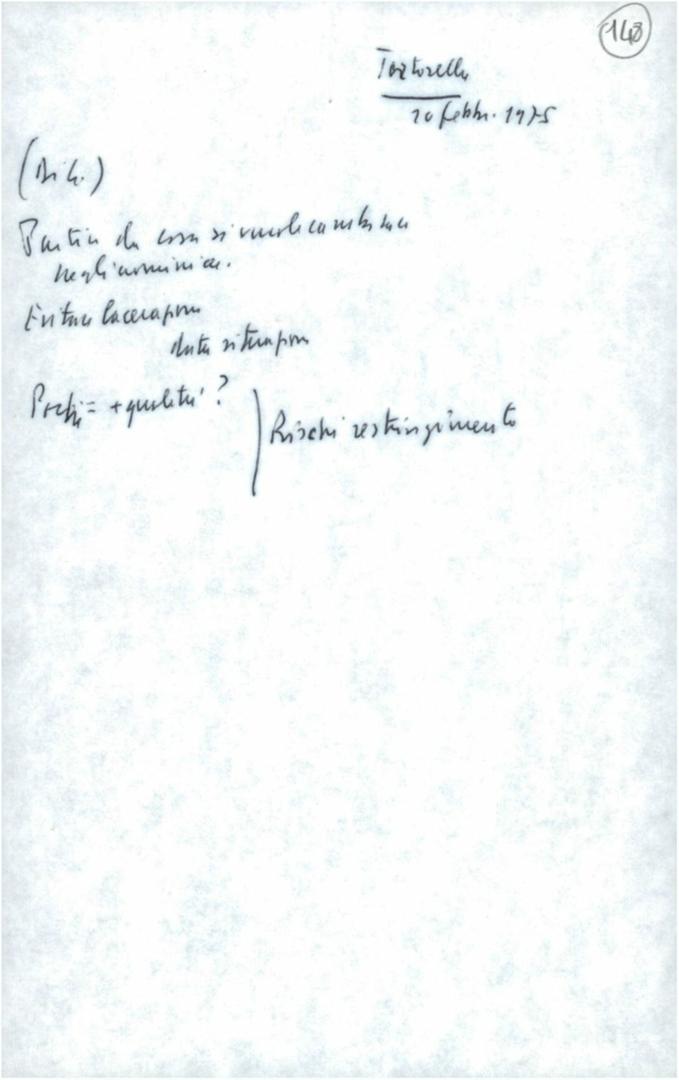 148
Tortorella
20 febbr. 1975
Partire da cosa si vuole cambiare
negli uomini
Evitare lacerazioni
data situazione
Pochi = + qualità?
Rischi restringimento